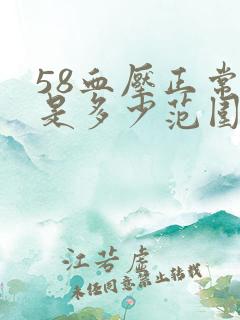 58血压正常
是多少范围
江若虚
未经同意禁止转载